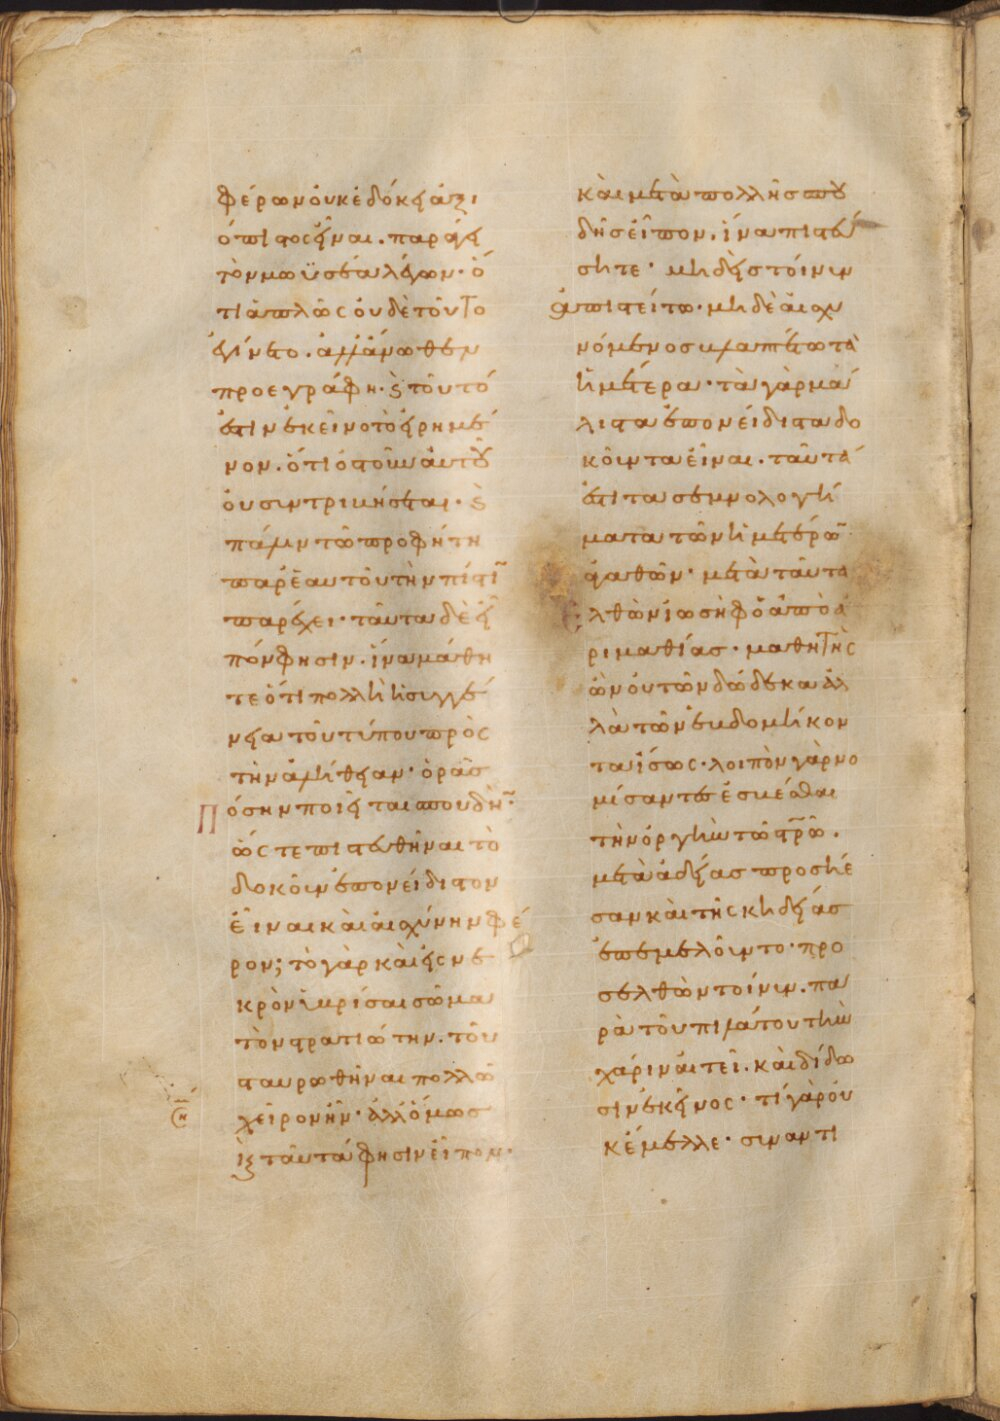 φέρων ὀυκ ἐδόκει ἀξι
όπιστος εἶναι. παράγει
τὸν μωϋσέα λέγων· ὅ
τι ἁπλῶς ὀυδὲ τοῦτο
ἐγίνετο. ἀλλ' ἄνωθεν
προεγράφη. καὶ τοῦτό
ἐστιν ἐκεῖνο τὸ εἰρημέ
νον. ὅτι ὀστοῦν αὐτοῦ
ὀυ συντριβήσεται. καὶ
πάλιν τῶ προφήτη
παρ' ἑαυτοῦ τὴν πίστιν
παρέχει· ταῦτα δὲ εἶ
πόν φησιν. ἵνα μάθη
τε ὅτι πολλὴ ἡ συγγέ
νεια τοῦ τύπου πρὸς
τὴν ἀλήθειαν· ὁρᾶς
πόσην ποιεῖται σπουδὴν·
ὥστε πιστευθῆναι τὸ
δοκοῦν ἐπονείδιστον
εἶναι καὶ αἰσχύνην φέ
ρον; τὸ γὰρ καὶ εἰς νε
κρὸν ὑβρίσαι σῶμα
τὸν στρατιώτην. τοῦ
σταυρωθῆναι πολλῶ
χεῖρον ἦν· ἀλλ' ὅμως
καὶ ταῦτά φησιν εἶπον·
καὶ μετὰ πολλῆς σπου
δῆς εἶπον. ἵνα πιστεύ
σητε· μηδεὶς τοίνυν
ἀπιστείτω· μηδὲ αἰσχυ
νόμενος βλαπτέτω τὰ
ἡμέτερα· τὰ γὰρ μά
λιστα ἐπονείδιστα δο
κοῦντα εἶναι. ταῦτά
ἐστι τα σεμνολογή
ματα τῶν ἡμετέρων
ἀγαθῶν· μετὰ ταῦτα
ἐλθὼν ἰωσὴφ ὁ ἀπὸ ἀ
ριμαθίας· μαθητὴς
ὢν ὀυ τῶν δώδεκα ἀλ
λὰ τῶν ἑβδομήκον
τα ἴσως· λοιπὸν γὰρ νο
μίσαντες ἐσβέσθαι
τὴν ὀργὴν τῶ σταυρῶ.
μετὰ ἀδείας προσήε
σαν καὶ τῆς κηδείας
ἐπεμελοῦντο· προ
σελθὼν τοίνυν. πα
ρὰ τοῦ πιλάτου τὴν
χάριν αἰτεῖ. καὶ δίδω
σιν ἐκεῖνος· τί γὰρ ὀυ
κ ἔμελλε· συναντι